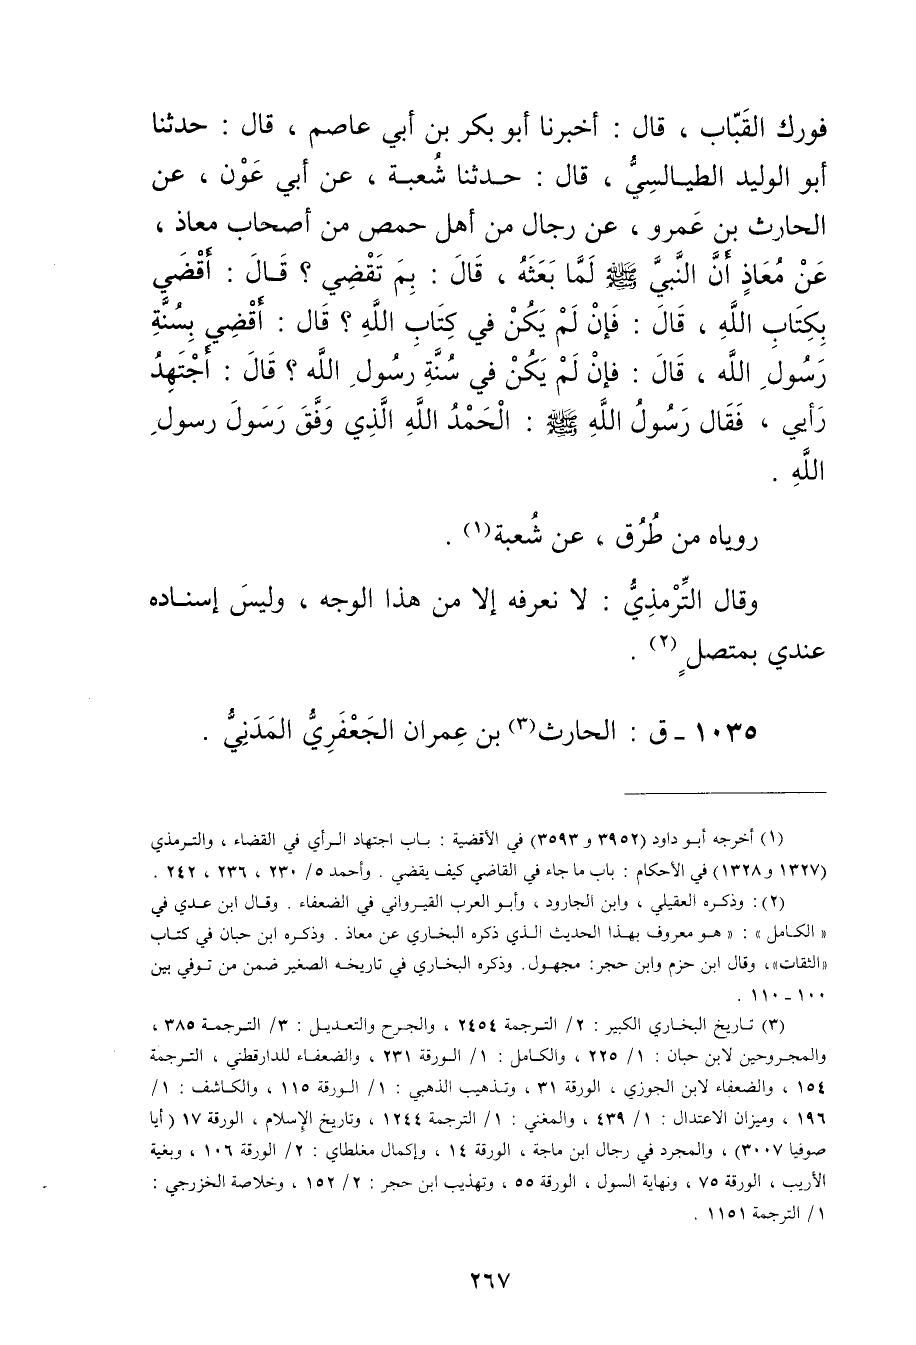 فورك القَبّاب ، قال : أخبرنا أبو بكر بن أبي عاصم ، قال : حدثنا
أبو الوليد الطيالسِيُّ ، قال : حدثنا شُعبة ، عن أبي عَوْن ، عن
الحارث بن عَمرو ، عن رجال من أهل حمص من أصحاب معاذ ،
عَنْ مُعَاذٍ أَنَّ النَّبِيَّ ﷺ لَمَّا بَعَثَهُ ، قَالَ : بِمَ تَقْضِي ؟ قَالَ : أَقْضَي
بِكِتَابِ اللَّهِ ، قَالَ : فَإِنْ لَمْ يَكُنْ في كِتَابِ اللَّهِ ؟ قَال : أَقْضِي بِسُنَّةِ
رَسُولِ اللَّه ، قَالَ : فإنْ لَمْ يَكُنْ في سُنَّةِ رسُولِ اللَّه ؟ قَالَ : أَجْتَهِدُ
رَأيي ، فَقَال رَسُولُ اللَّهِ ﷺ : الْحَمْدُ اللَّهِ الَّذِي وَفَّقَ رَسَولَ رسولِ
اللَّهِ .
روياه من طُرُق ، عن شُعبة(١) .
وقال التِّرْمذِيُّ : لا نعرفه إلا من هذا الوجه ، وليسَ إسناده
عندي بمتصلٍ(٢) .
١٠٣٥ - ق : الحارث(٣) بن عِمران الجَعْفَرِيُّ المَدَنِيُّ .
(١) أخرجه أبو داود (٣٩٥٢ و ٣٥٩٣) في الأقضية : باب اجتهاد الرأي في القضاء ، والترمذي
(١٣٢٧ و ١٣٢٨) في الأحكام : باب ما جاء في القاضي كيف يقضي . وأحمد ٥/ ٢٣٠ ، ٢٣٦ ، ٢٤٢ .
(٢): وذكره العقيلي ، وابن الجارود ، وأبو العرب القيرواني في الضعفاء . وقال ابن عدي في
« الكامل » : « هو معروف بهذا الحديث الذي ذكره البخاري عن معاذ . وذكره ابن حبان في كتاب
«الثقات»، وقال ابن حزم وابن حجر: مجهول. وذكره البخاري في تاريخه الصغير ضمن من توفي بين
١٠٠ - ١١٠ .
(٣) تاريخ البخاري الكبير : ٢/ الترجمة ٢٤٥٤ ، والجرح والتعديل : ٣/ الترجمة ٣٨٥ ،
والمجروحين لابن حبان : ١/ ٢٢٥ ، والكامل : ١/ الورقة ٢٣١ ، والضعفاء للدارقطني ، الترجمة
١٥٤ ، والضعفاء لابن الجوزي ، الورقة ٣١ ، وتذهيب الذهبي : ١/ الورقة ١١٥ ، والكاشف : ١/
١٩٦ ، وميزان الاعتدال : ١/ ٤٣٩ ، والمغني : ١/ الترجمة ١٢٤٤ ، وتاريخ الإسلام ، الورقة ١٧ (أيا
صوفيا ٣٠٠٧) ، والمجرد في رجال ابن ماجة ، الورقة ١٤ ، وإكمال مغلطاي : ٢/ الورقة ١٠٦ ، وبغية
الأريب ، الورقة ٧٥ ، ونهاية السول ، الورقة ٥٥ ، وتهذيب ابن حجر : ٢/ ١٥٢ ، وخلاصة الخزرجي :
١/ الترجمة ١١٥١ .
٢٦٧